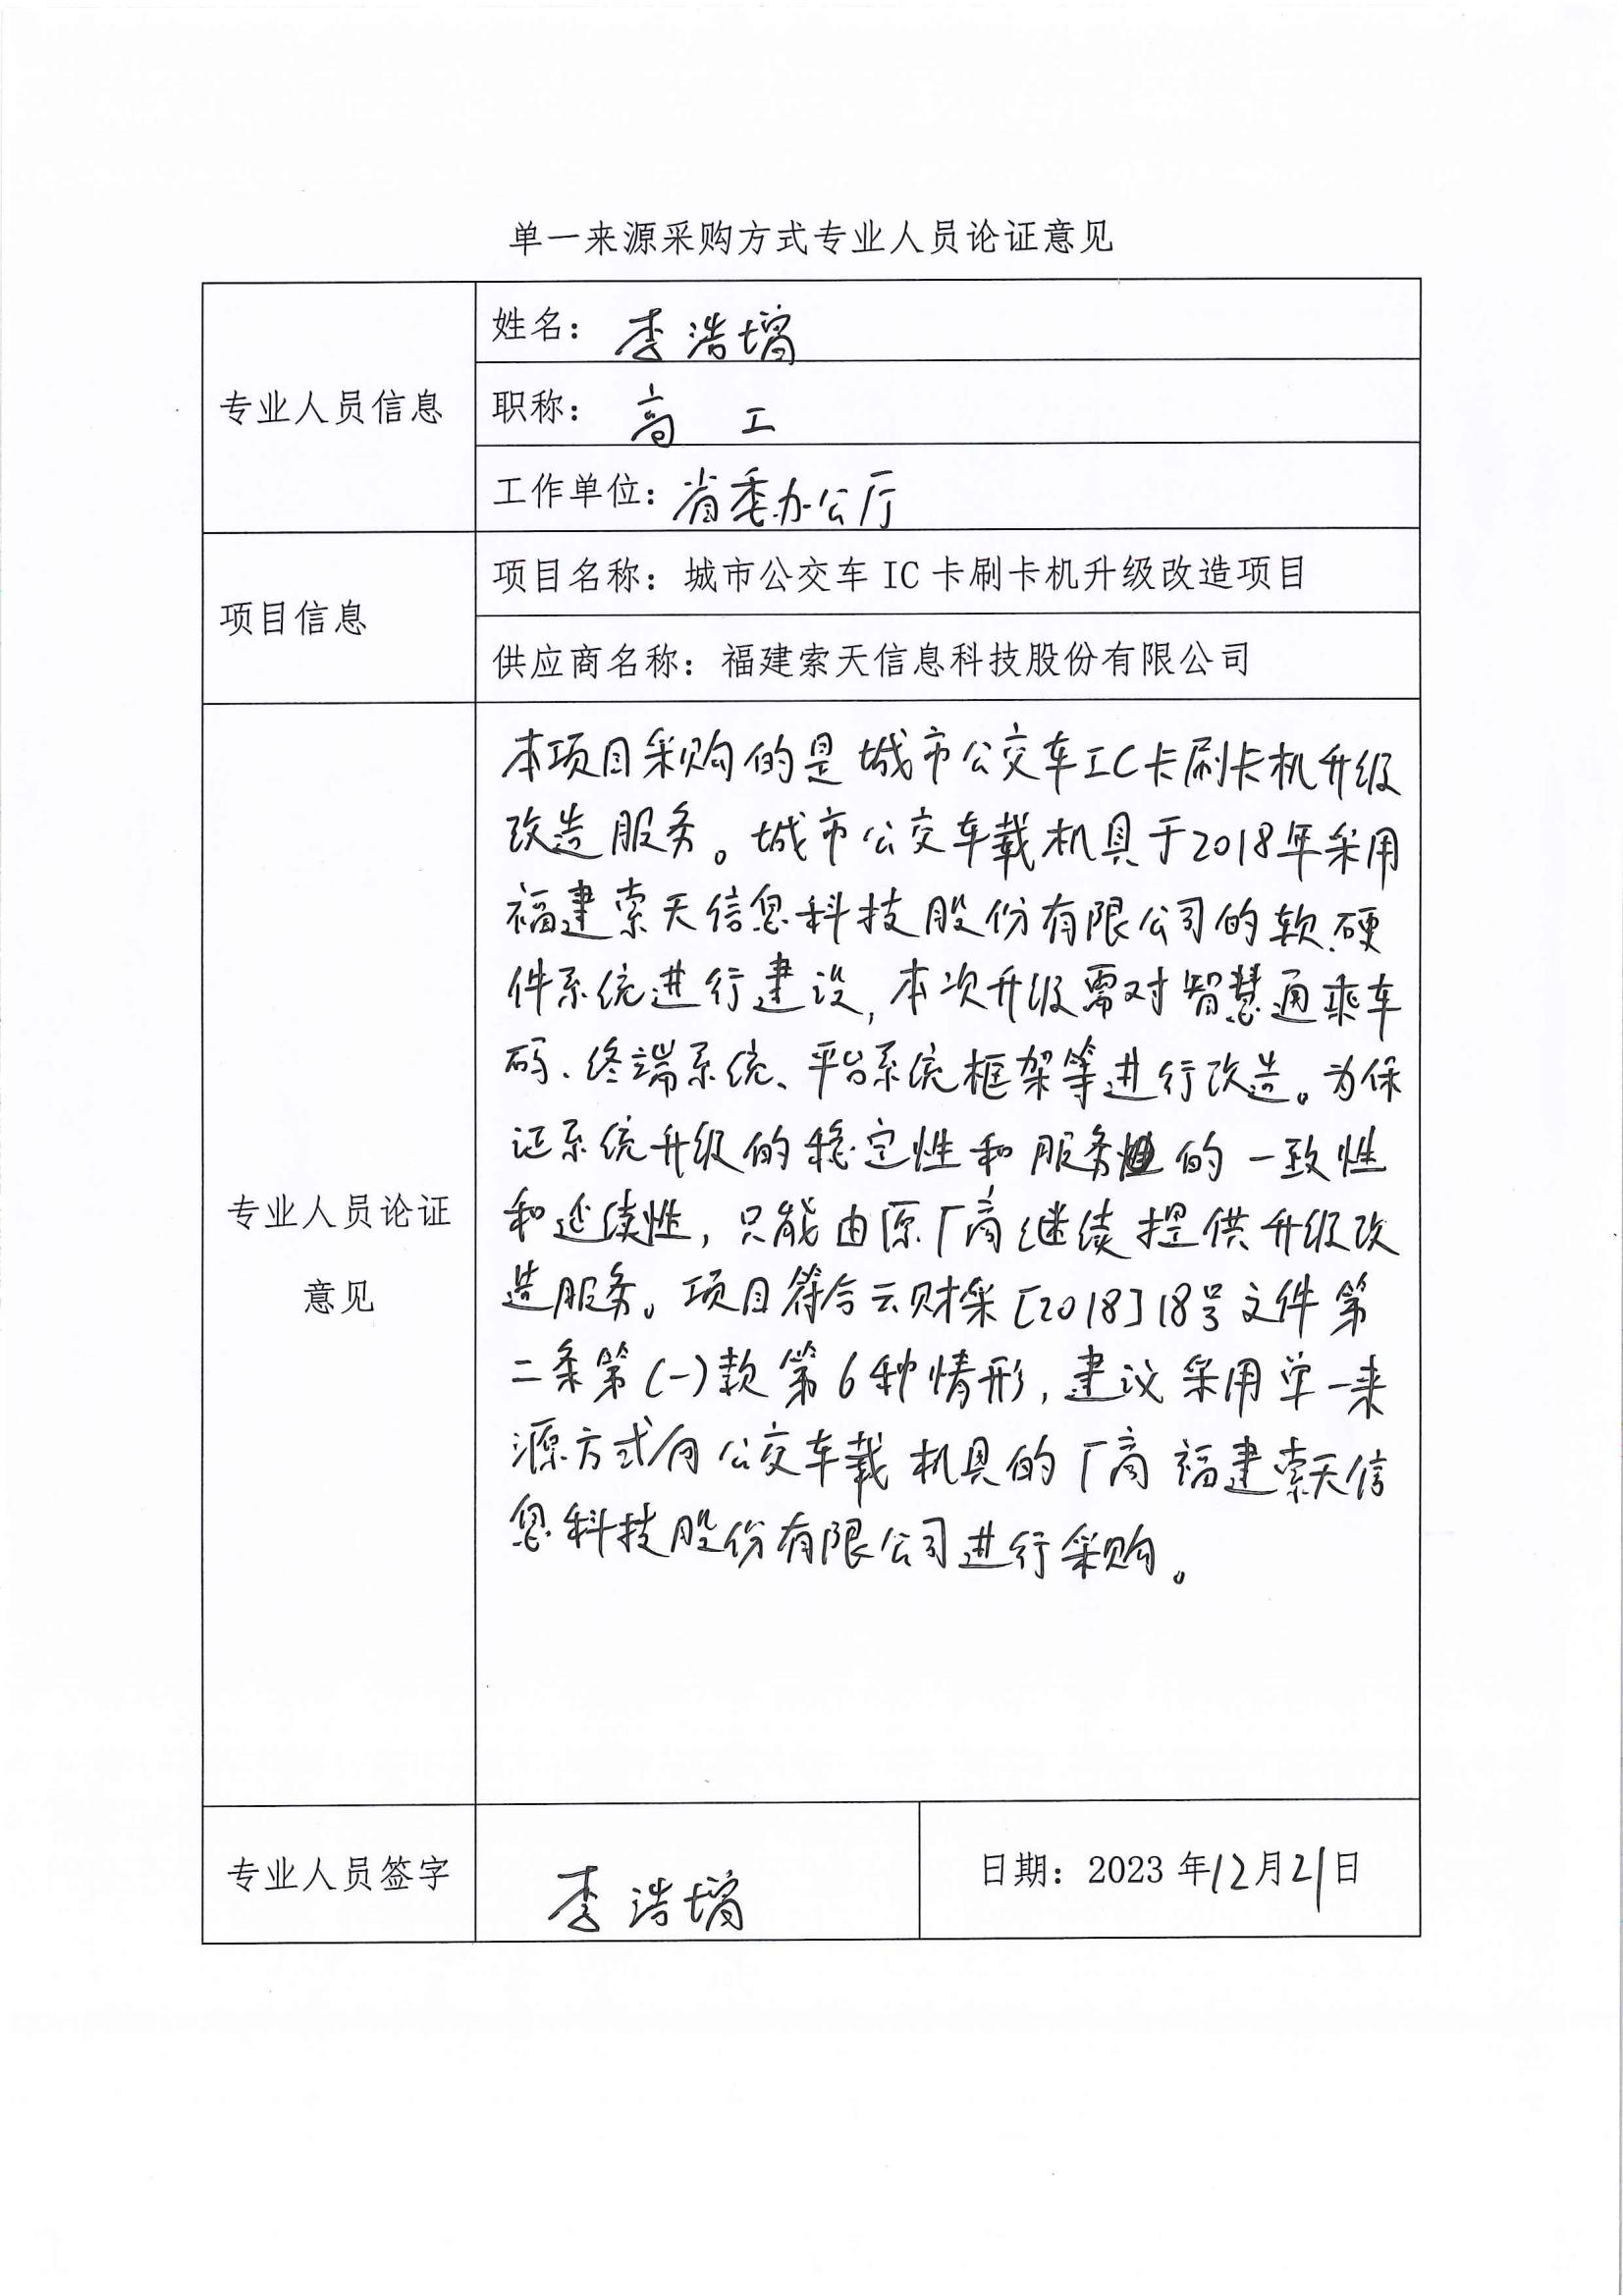 单一来源采购方式专业人员论证意见
专业人员信息
姓名：李浩
职称：高 工
工作单位：省委办公厅
项目信息
项目名称：城市公交车 IC 卡刷卡机升级改造项目
供应商名称：福建索天信息科技股份有限公司
专业人员论证
意见
本项目采购的是城市公交车IC卡刷卡机升级
改造服务。城市公交车载机具于2018年采用
福建索天信息科技股份有限公司的软、硬
件系统进行建设，本次升级需对智慧通乘车
码、终端系统、平台系统框架等进行改造。为保
证系统升级的稳定性和服务的一致性
和延续性，只能由原厂商继续提供升级改
造服务。项目符合云财采〔2018〕18号文件第
二条第(一)款第6种情形，建议采用单一来
源方式向公交车载机具的厂商福建索天信
息科技股份有限公司进行采购。
专业人员签字
李浩
日期：2023 年12月21日